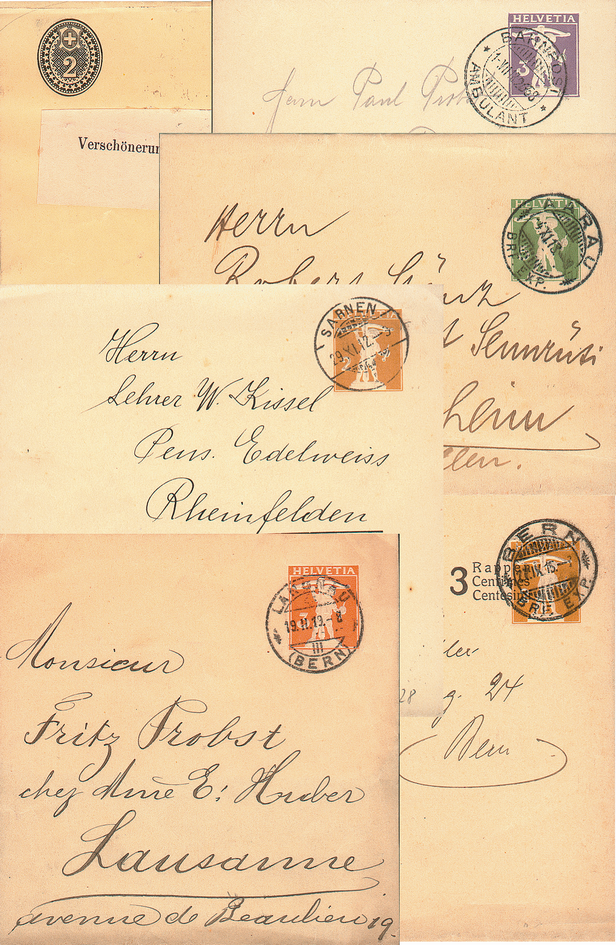 2
Verschönerun
HELVETIA
BAHNPOST
AMBULANT
Herrn Paul Prob
HELVETIA
AARAU
BRF. EXP.
Herrn
Robert
Sennrüti
heim
llen.
SARNEN
29.XI.12.
Herrn
Lehrer W. Kissel
Pens. Edelweiss
Rheinfelden
BERN
BRF. EXP.
3
Rappen
Centimes
Centesimi
ler
g. 24
Bern
28
HELVETIA
LANGNAU
19.II.19.-8
III
(BERN)
Monsieur
Fritz Probst
chez Mme E: Huber
Lausanne
avenue de Beaulieu 19.